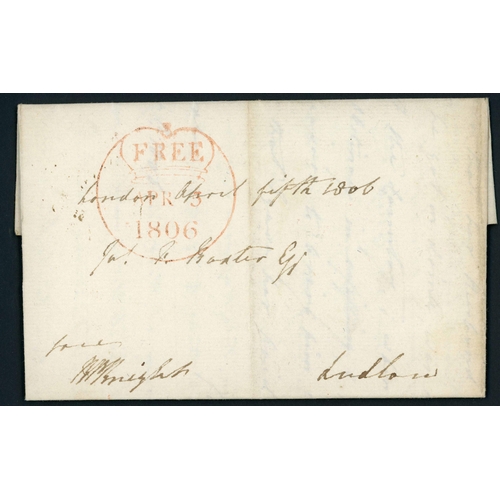 FREE
APR 5
1806
London April fifth 1806
Baxter Esq
free
Knight
Ludlow